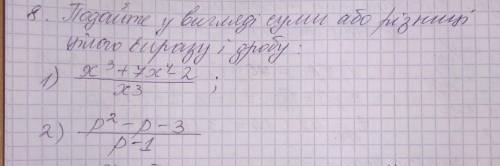 8. Подайте у вигляді суми або різниці
цілого виразу і дробу:
1) (x³ + 7x² - 2) / x3 ;
2) (p² - p - 3) / (p - 1)